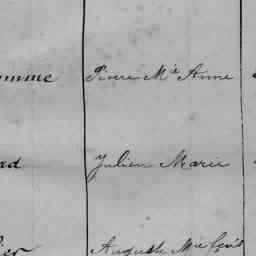 mme Pierre Mie Anne
ad Julien Marie
ier Auguste Mie